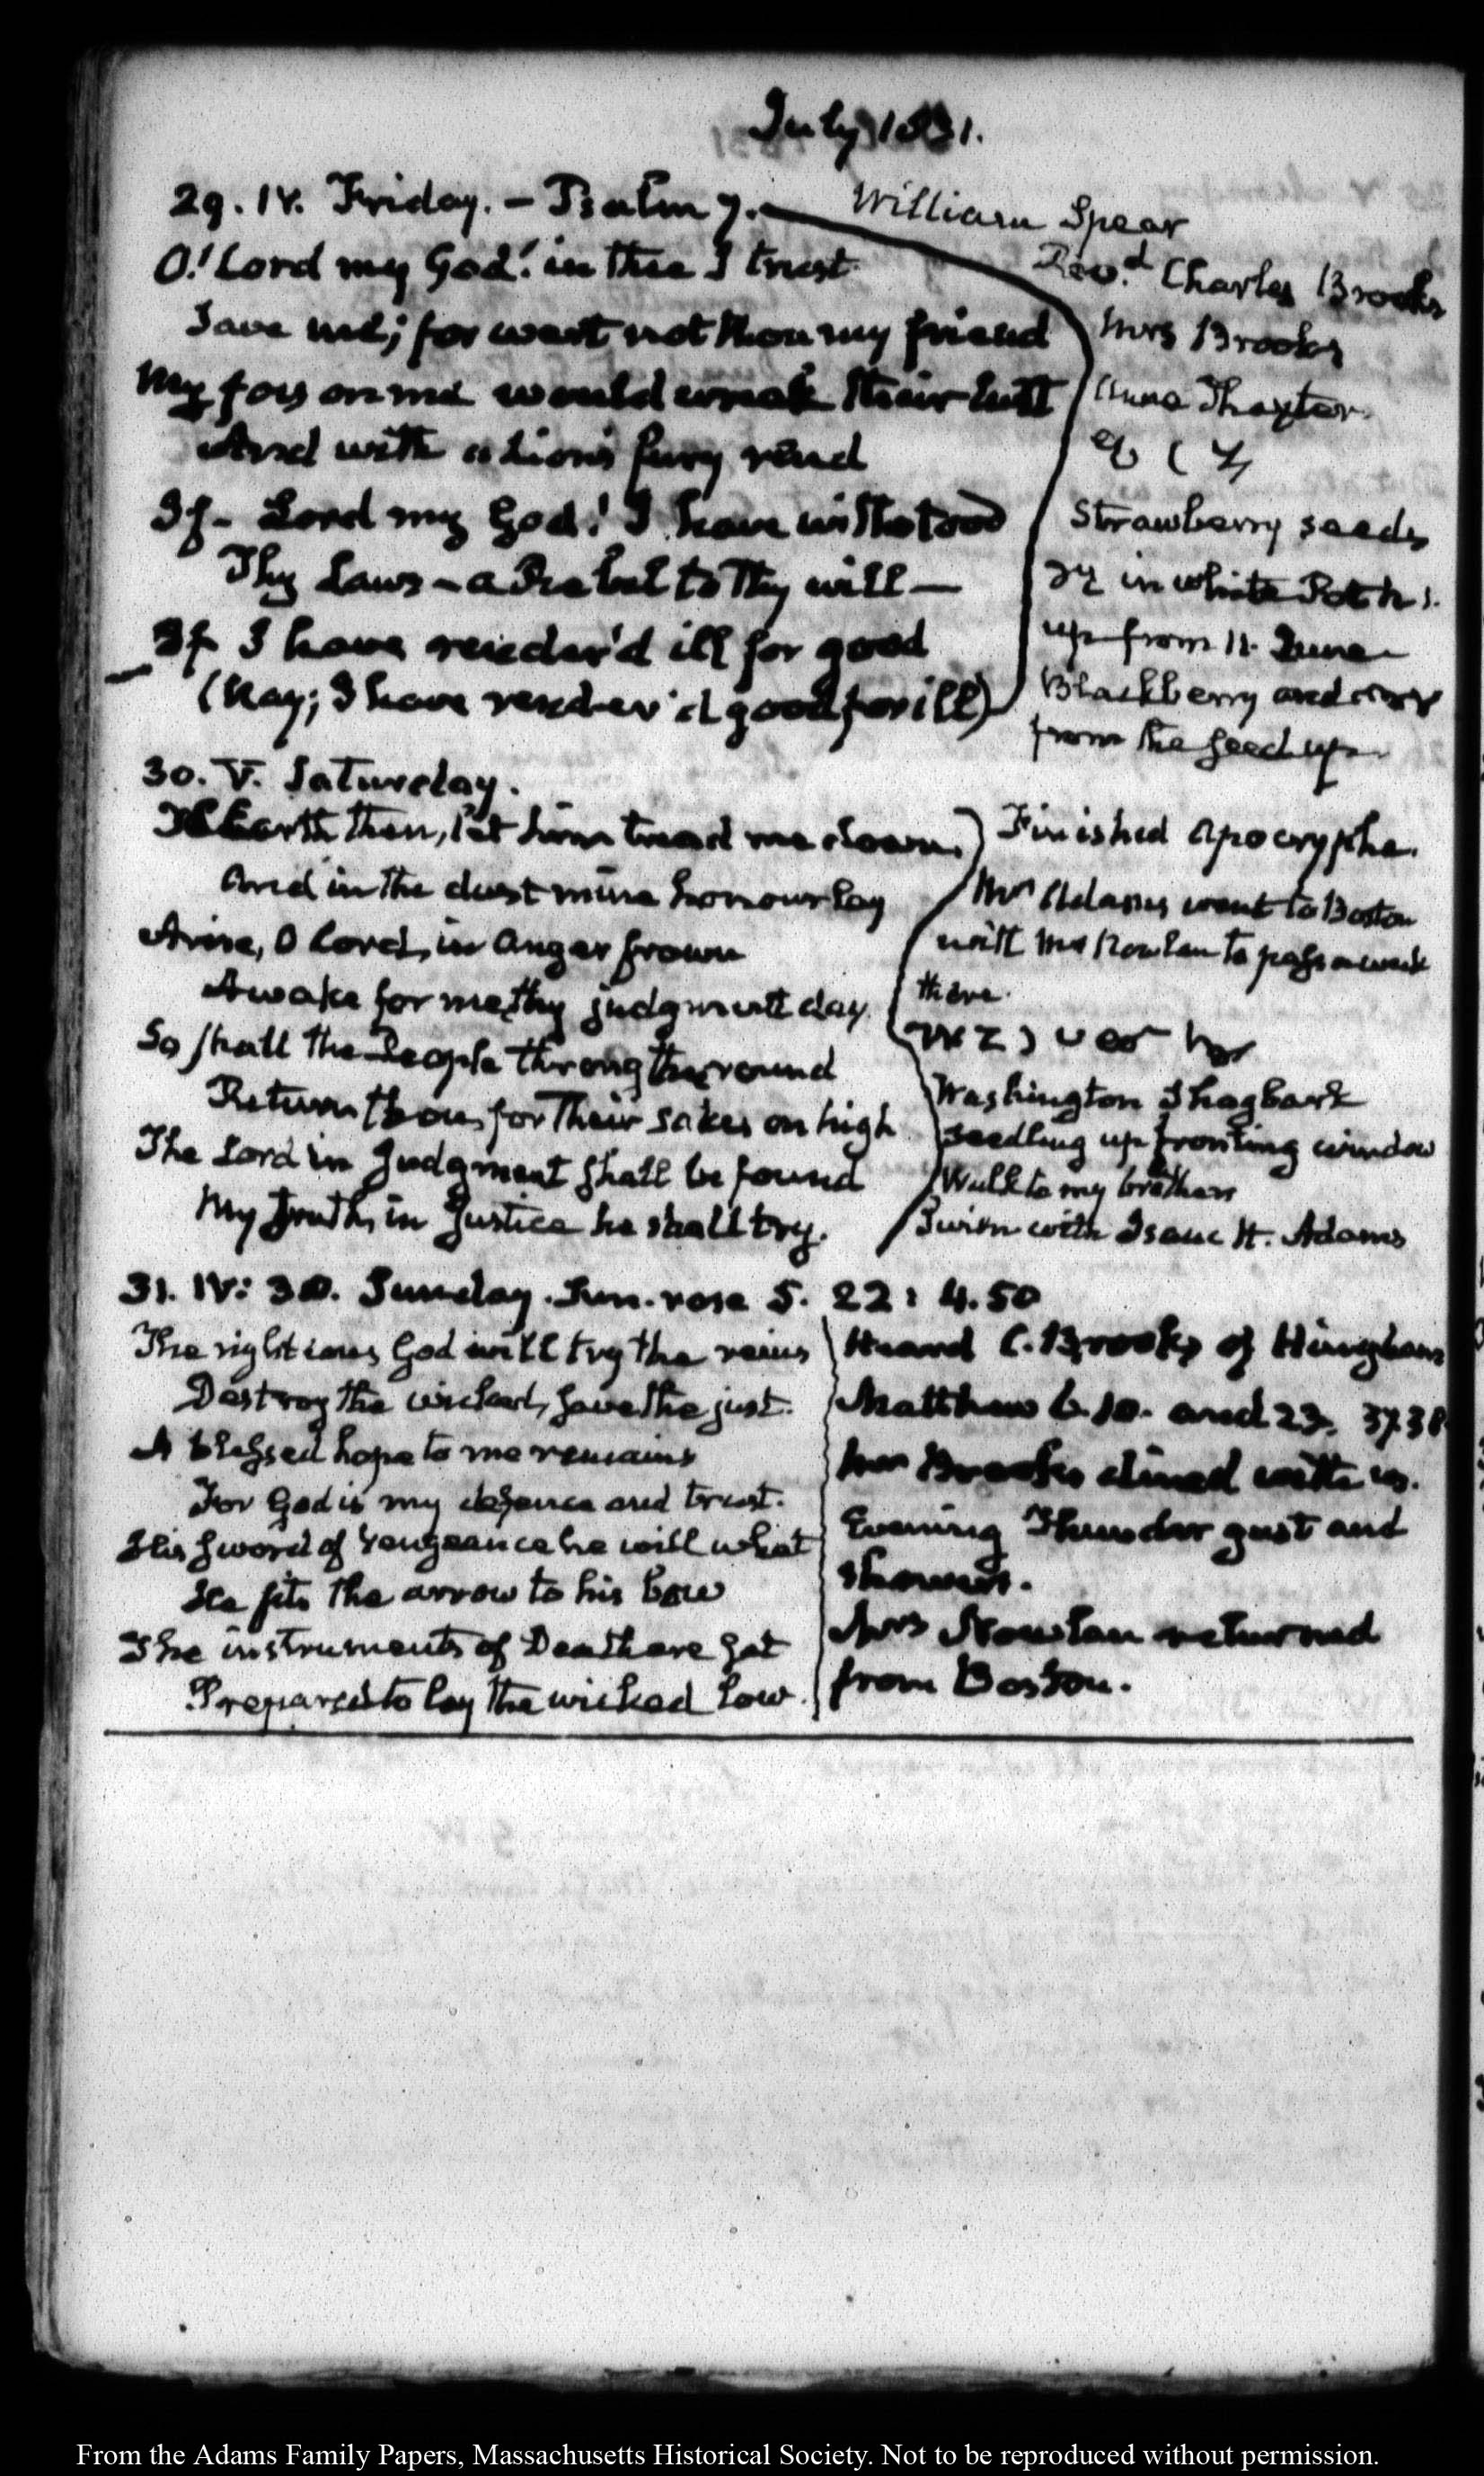 July 1831.
29. IV. Friday. – Psalm 7.
O! Lord my God! in thee I trust
Save me; for wert not thou my friend
My foes on me would wreak their lust
And with a Lion's fury rend
If – Lord my God! I have withstood
Thy Laws – a Rebel to Thy will –
If I have render'd ill for good
(Nay; I have render'd good for ill)
William Spear
Revd. Charles Brooks
Mrs Brooks
Anna Thaxter
Strawberry seeds
in white Pot N. 1.
up from 11. June
Blackberry and
from the seed up
30. V. Saturday.
To Earth then, let him tread me down.
And in the dust mine honour lay
Arise, O Lord, in anger frown
Awake for me, thy judgment day.
So shall the People throng thee round
Return thou, for their sakes on high
The Lord in Judgment shall be found
My Truth, in Justice he shall try.
Finished Apocrypha.
Mrs Adams went to Boston
with Mrs Nowlan to pass a week
there.
Washington Shagbark
seedling up fronting window
Walk to my brothers
Swim with Isaac H. Adams
31. IV: 30. Sunday. Sun rose 5. 22: 4.50
The righteous God will try the reins
Destroy the wicked, save the just.
A blessed hope to me remains
For God is my defence and trust.
His sword of Vengeance he will whet
He fits the arrow to his bow
The instruments of Death are set
Prepared to lay the wicked low.
Heard C. Brooks of Hingham
Matthew 6. 10. and 23. 37.38
Mr Brooks dined with us.
Evening Thunder gust and
shower.
Mrs Nowlan returned
from Boston.
From the Adams Family Papers, Massachusetts Historical Society. Not to be reproduced without permission.